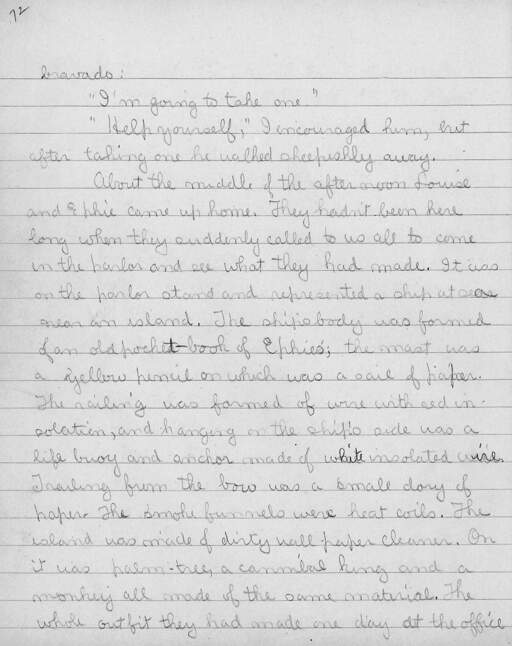 72
bravado:
"I'm going to take one."
"Help yourself," I encouraged him, but
after taking one he walked sheepishly away.
About the middle of the afternoon Louise
and Ephie came up home. They hadn't been here
long when they suddenly called to us all to come
in the parlor and see what they had made. It was
on the parlor stand and represented a ship at sea
near an island. The ship's body was formed
of an old pocket-book of Ephie's; the mast was
a yellow pencil on which was a sail of paper.
The railing was formed of wire with red in-
solation, and hanging on the ship's side was a
life buoy and anchor made of white insolated wire.
Trailing from the bow was a small dory of
paper. The smoke funnels were heat coils. The
island was made of dirty wall paper cleaner. On
it was palm-tree, a cannibal king and a
monkey all made of the same material. The
whole outfit they had made one day at the office